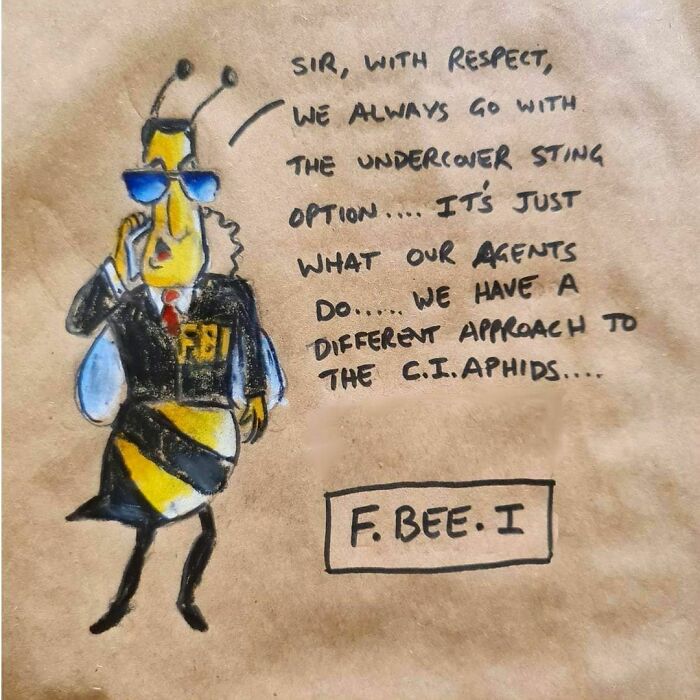 SIR, WITH RESPECT,
WE ALWAYS GO WITH
THE UNDERCOVER STING
OPTION.... IT'S JUST
WHAT OUR AGENTS
DO..... WE HAVE A
DIFFERENT APPROACH TO
THE C.I.APHIDS....
FBI
F. BEE. I